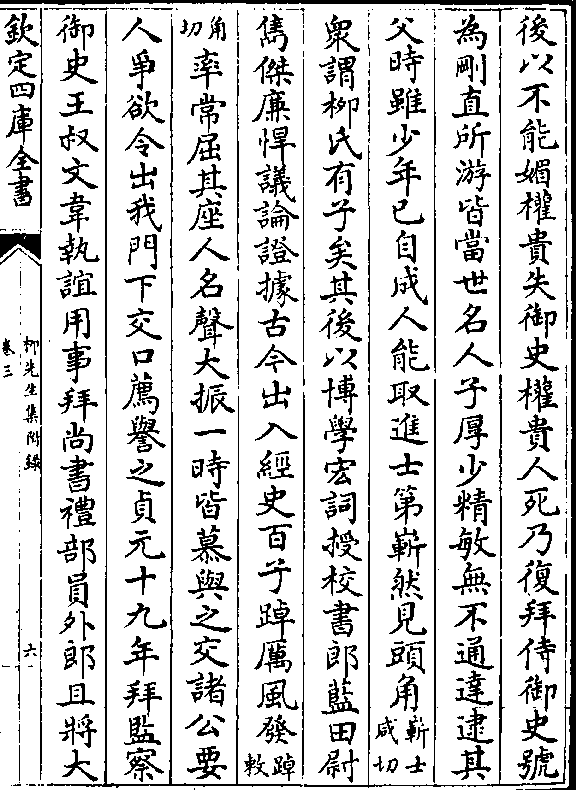 後以不能媚權貴失御史權貴人死乃復拜侍御史號
為剛直所游皆當世名人子厚少精敏無不通達逮其
父時雖少年已自成人能取進士第嶄然見頭角嶄士咸切
衆謂栁氏有子矣其後以博學宏詞授校書郎藍田尉
雋傑廉悍議論證據古今出入經史百子踔厲風發踔敕
角切率常屈其座人名聲大振一時皆慕與之交諸公要
人爭欲令出我門下交口薦譽之貞元十九年拜監察
御史王叔文韋執誼用事拜尚書禮部員外郎且將大
欽定四庫全書
栁先生集附錄
卷三
六